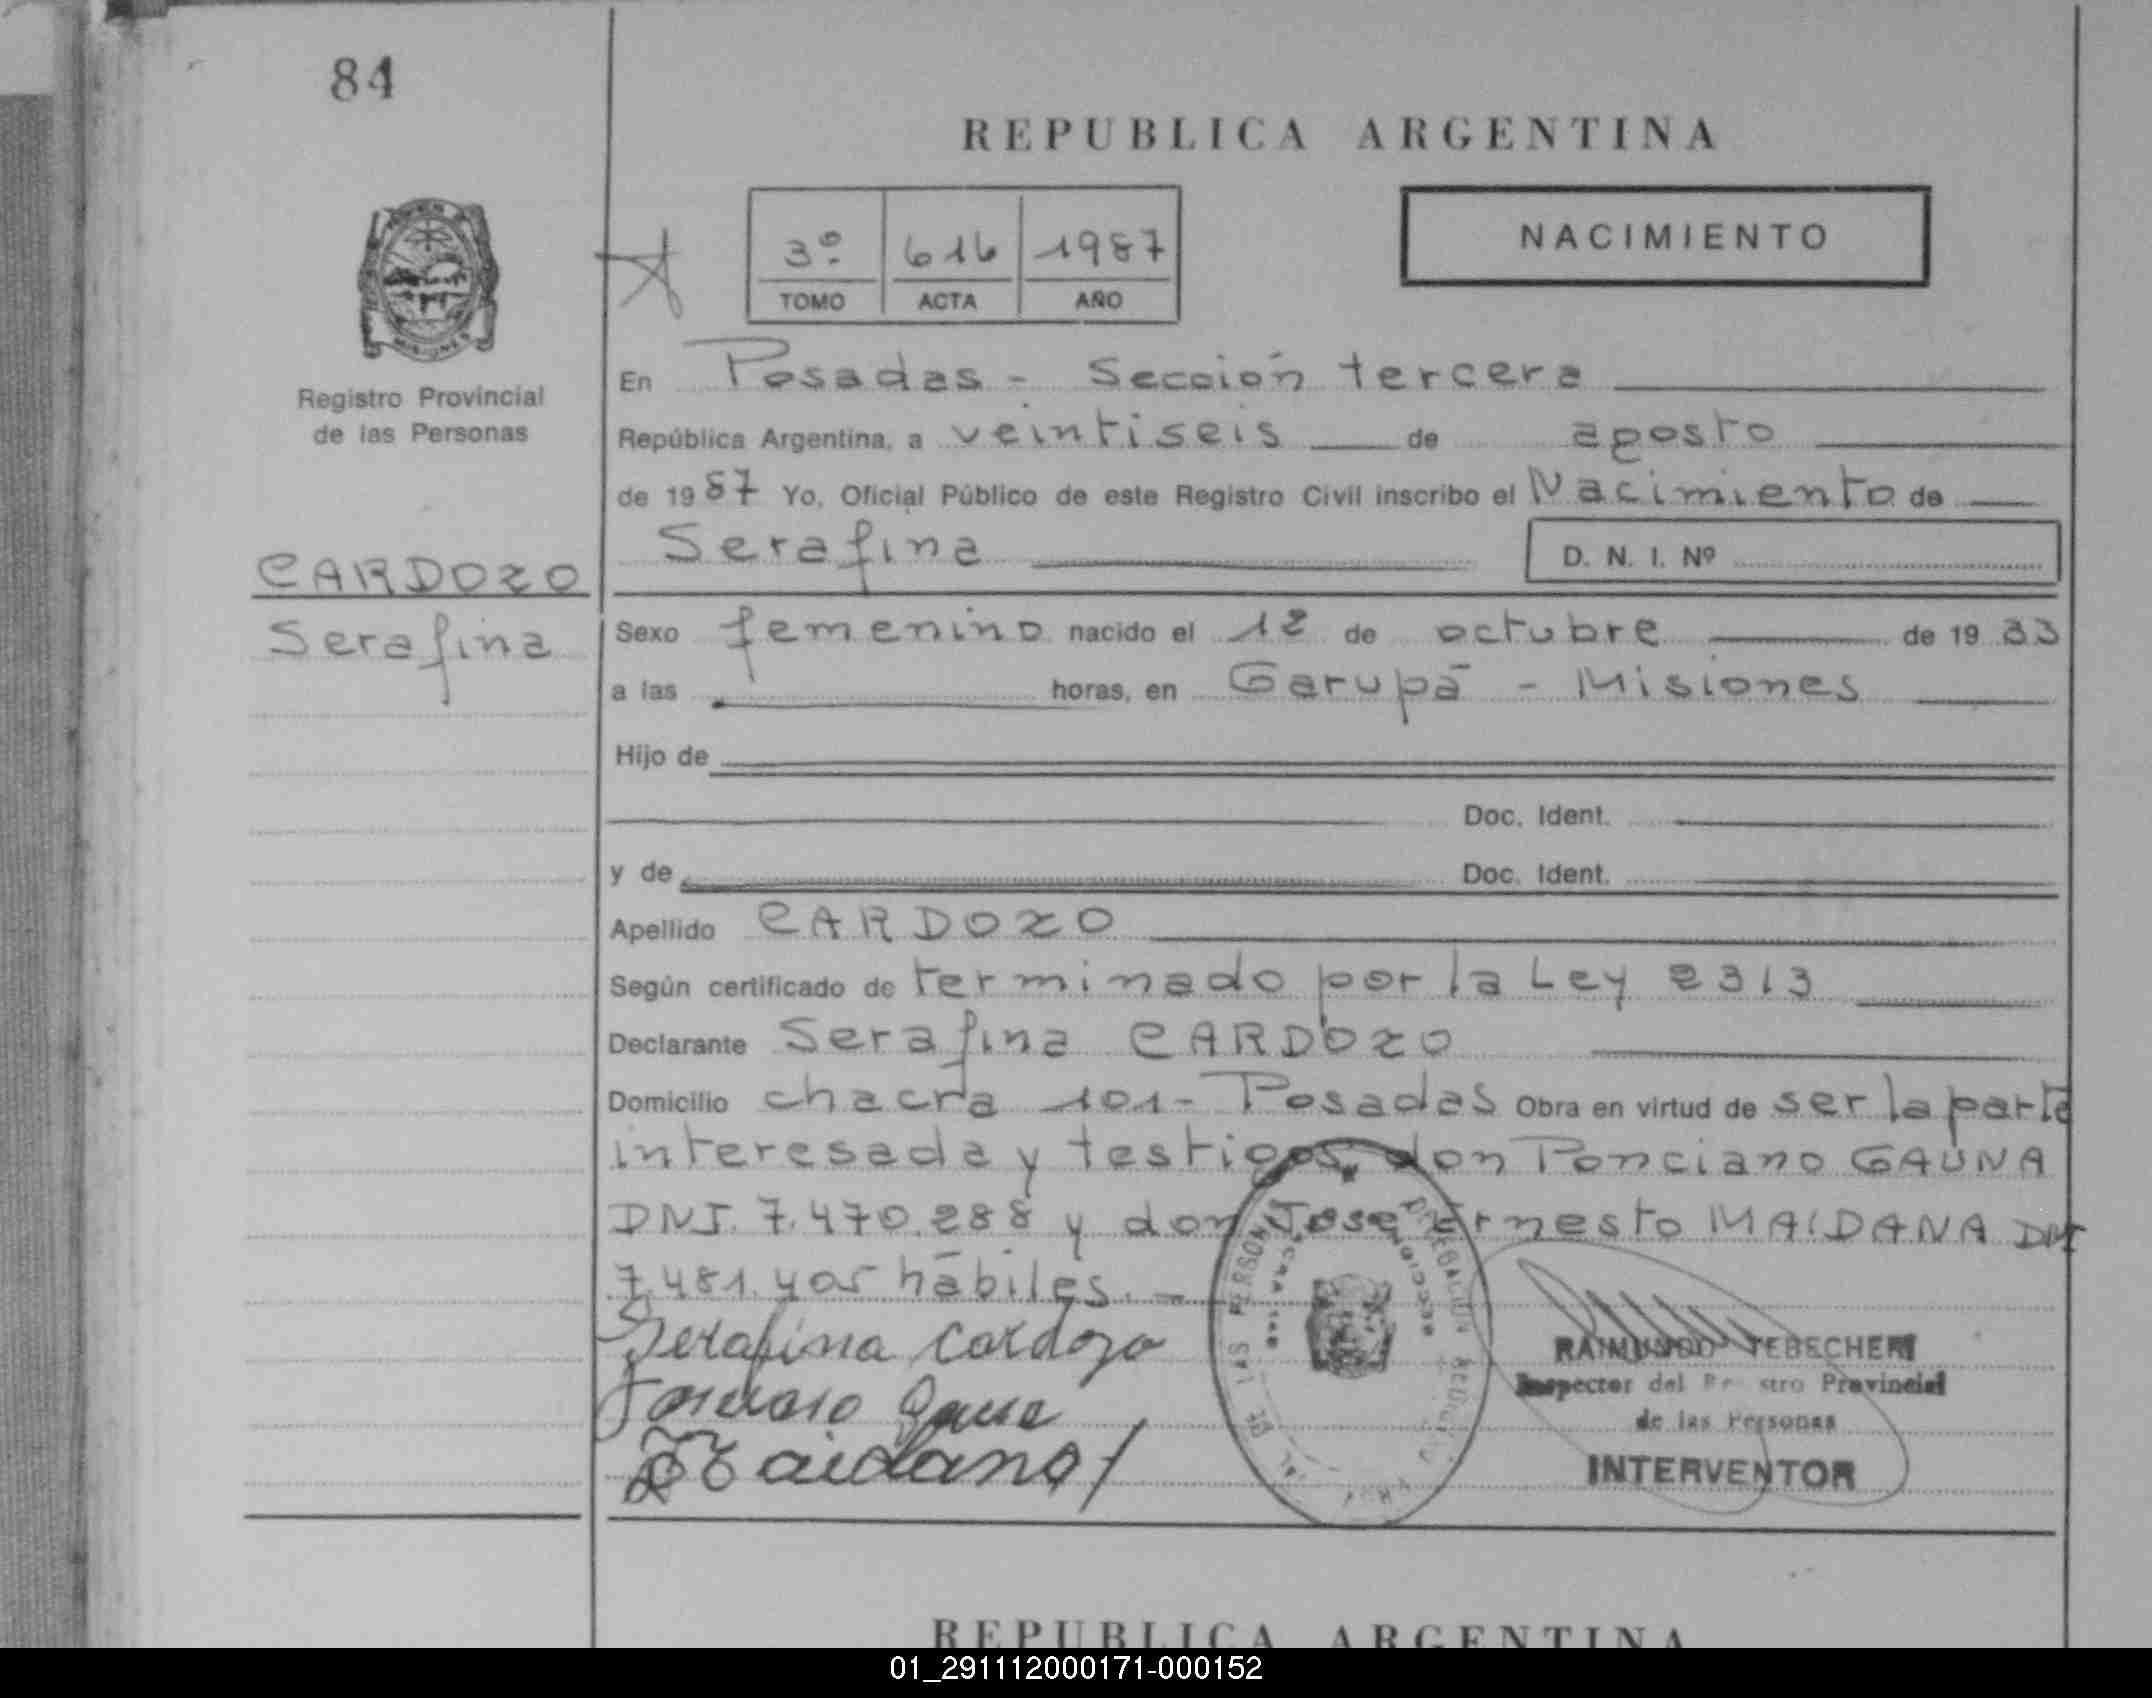 84
REPUBLICA ARGENTINA
3º 616 1987
TOMO ACTA AÑO
NACIMIENTO
MISIONES
Registro Provincial
de las Personas
CARDOZO
Serafina
En Posadas - Sección tercera
República Argentina, a veintiseis de agosto
de 1987 Yo, Oficial Público de este Registro Civil inscribo el Nacimiento de
Serafina D. N. I. Nº
Sexo femenino nacido el 12 de octubre de 1933
a las horas, en Garupá - Misiones
Hijo de
Doc. Ident.
y de Doc. Ident.
Apellido CARDOZO
Según certificado de terminado por la Ley 2313
Declarante Serafina CARDOZO
Domicilio chacra 101- Posadas Obra en virtud de ser la parte
interesada y testigos don Ponciano GAUNA
DNI. 7.470.288 y don Jose Ernesto MAIDANA DNI
7.481.405 hábiles. -
Serafina Cardozo
Ponciano Gauna
Maidana
DE LAS PERSONAS
RAIMUNDO TEBECHERI
Inspector del Registro Provincial
de las Personas
INTERVENTOR
REPUBLICA ARGENTINA
01_291112000171-000152